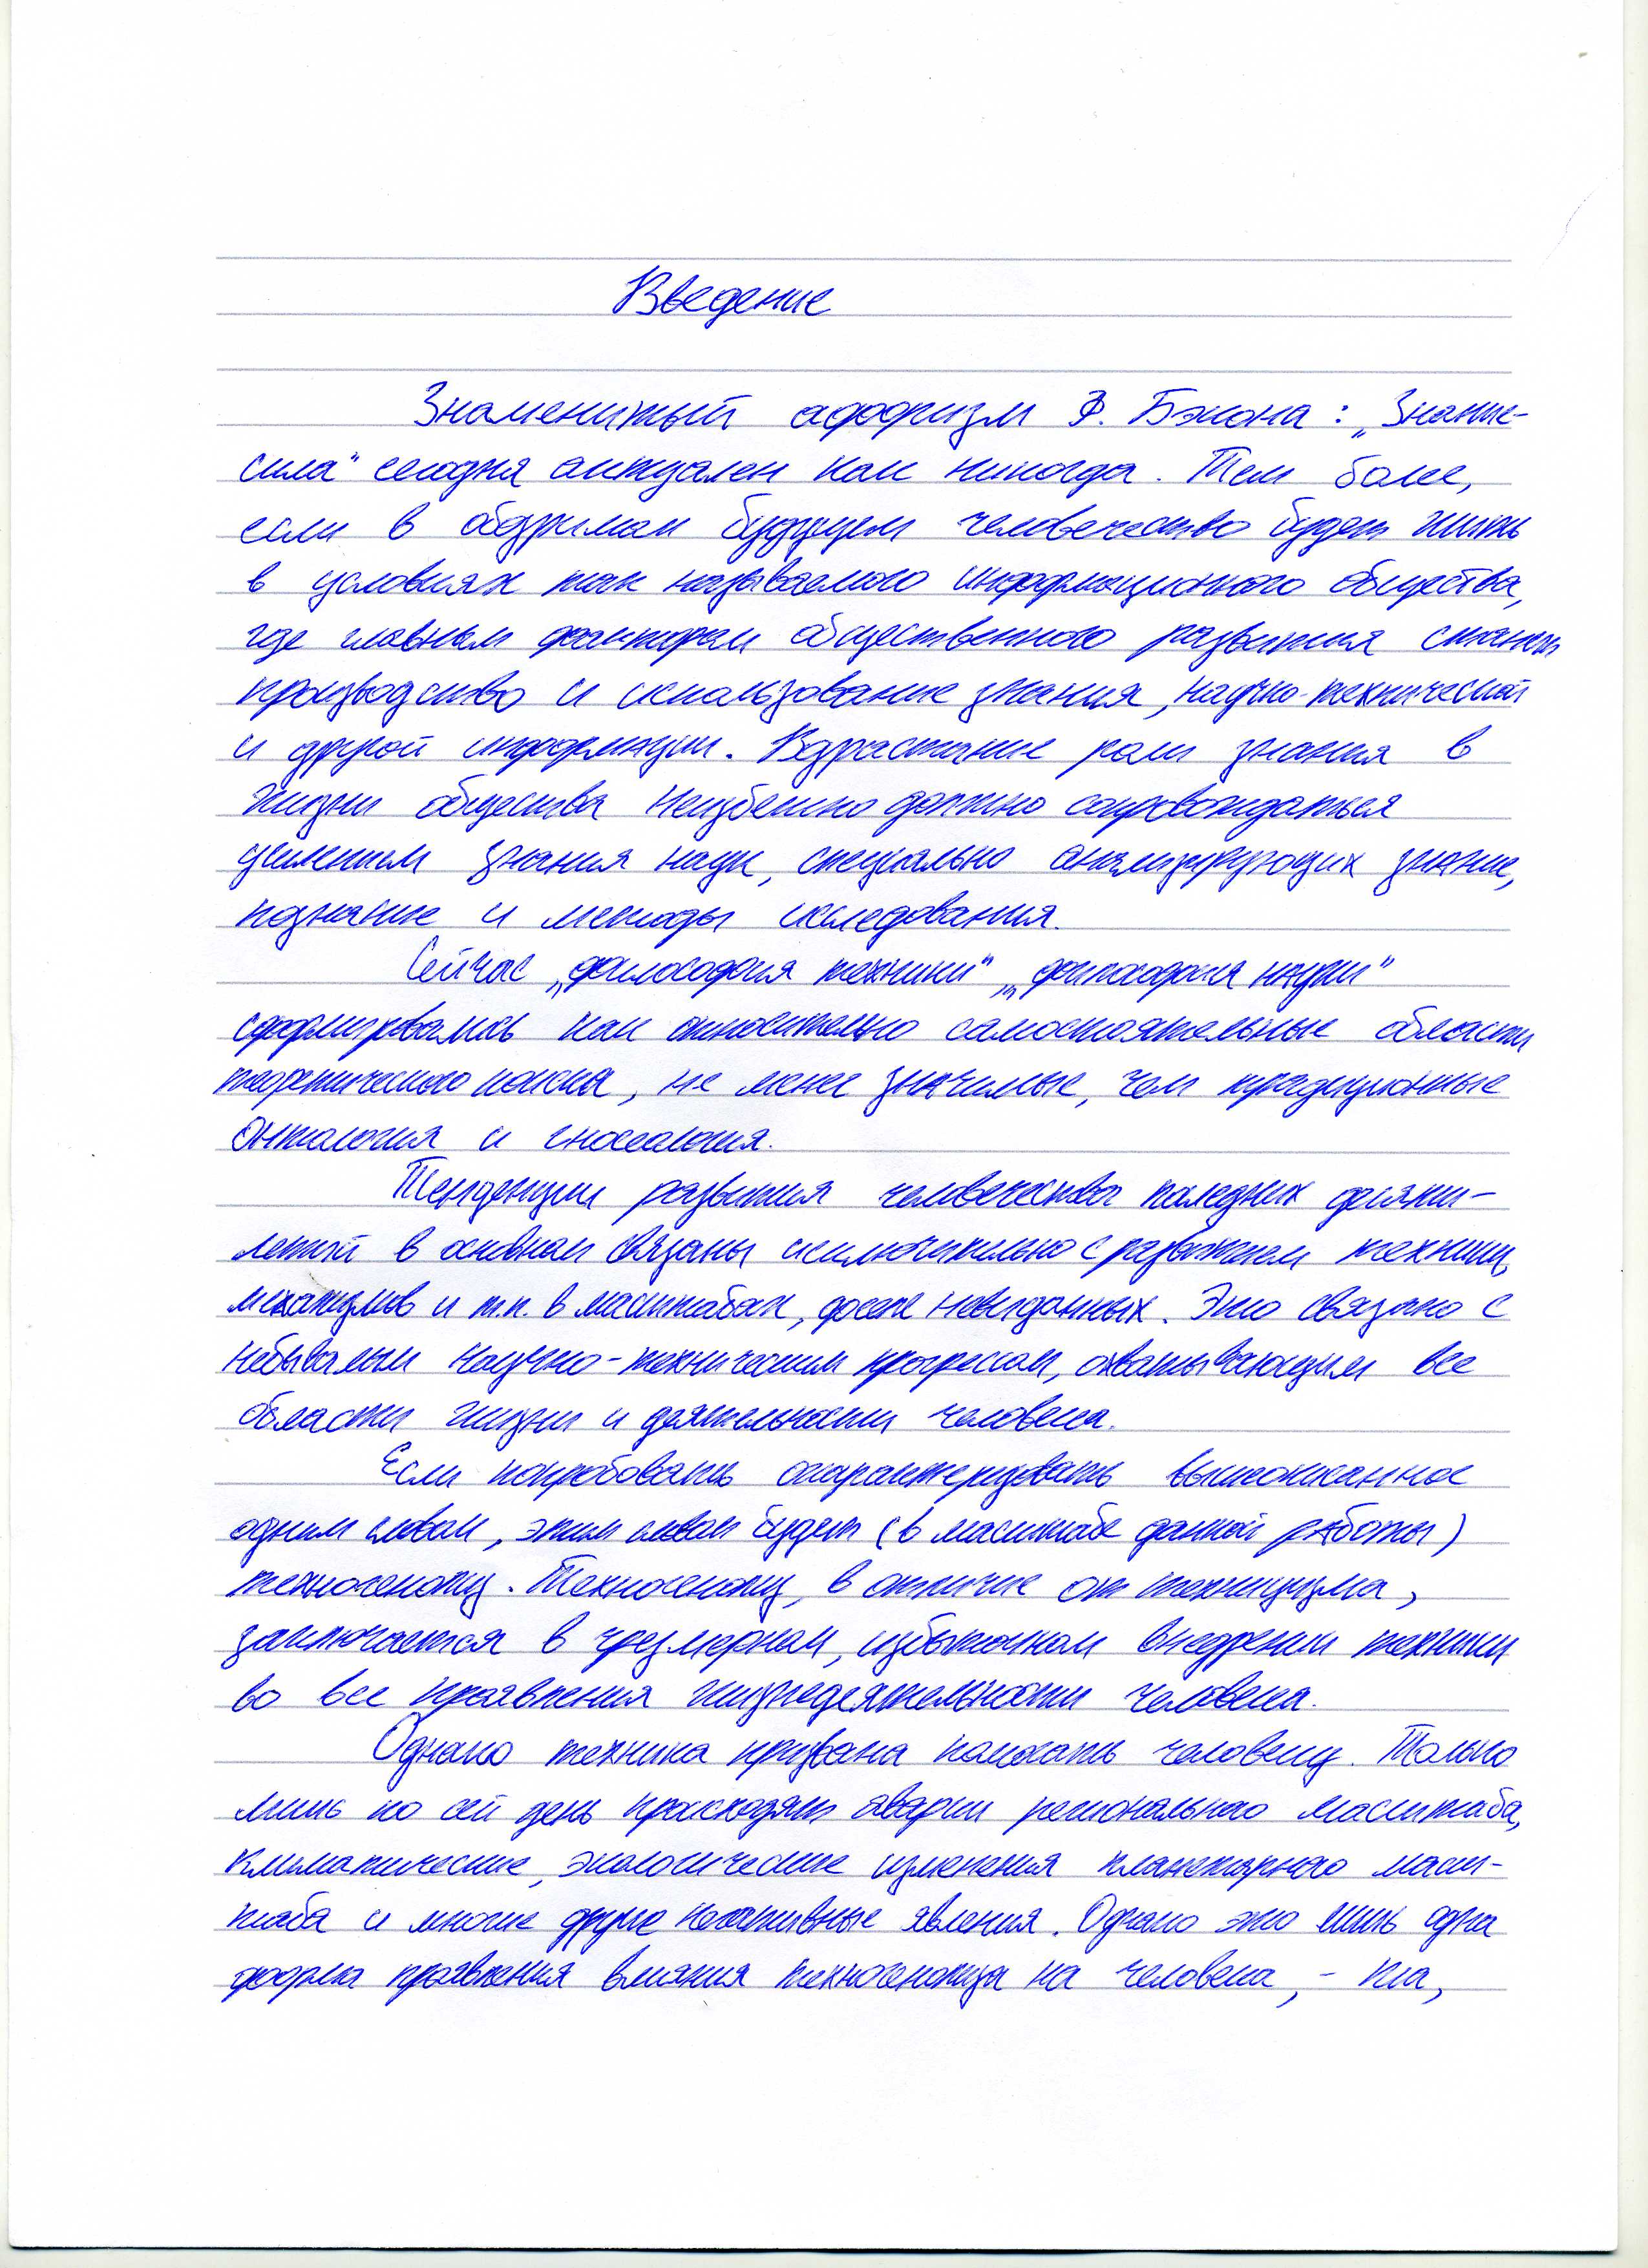 Введение
Знаменитый афоризм Ф. Бэкона: „Знание-
сила" сегодня актуален как никогда. Тем более,
если в обозримом будущем человечество будет жить
в условиях так называемого информационного общества,
где главным фактором общественного развития станет
производство и использование знания, научно-технической
и другой информации. Возрастание роли знания в
жизни общества неизбежно должно сопровождаться
усилением знания наук, специально анализирующих знание,
познание и методы исследования.
Сейчас „философия техники" „философия науки"
сформировались как относительно самостоятельные области
теоретического поиска, не менее значимые, чем традиционные
онтология и гносеология.
Тенденции развития человечества последних десяти-
летий в основном связаны исключительно с развитием техники,
механизмов и т.п. в масштабах, досель невиданных. Это связано с
небывалым научно-техническим прогрессом, охватывающим все
области жизни и деятельности человека.
Если попробовать охарактеризовать вышеописанное
одним словом, этим словом будет (в масштабе данной работы)
техногеноцид. Техногеноцид, в отличие от техницизма,
заключается в чрезмерном, избыточном внедрении техники
во все проявления жизнедеятельности человека.
Однако техника призвана помогать человеку. Только
лишь по сей день происходят аварии регионального масштаба,
климатические, экологические изменения планетарного масш-
таба и многие другие негативные явления. Однако это лишь одна
форма проявления влияния техногеноцида на человека, - та,